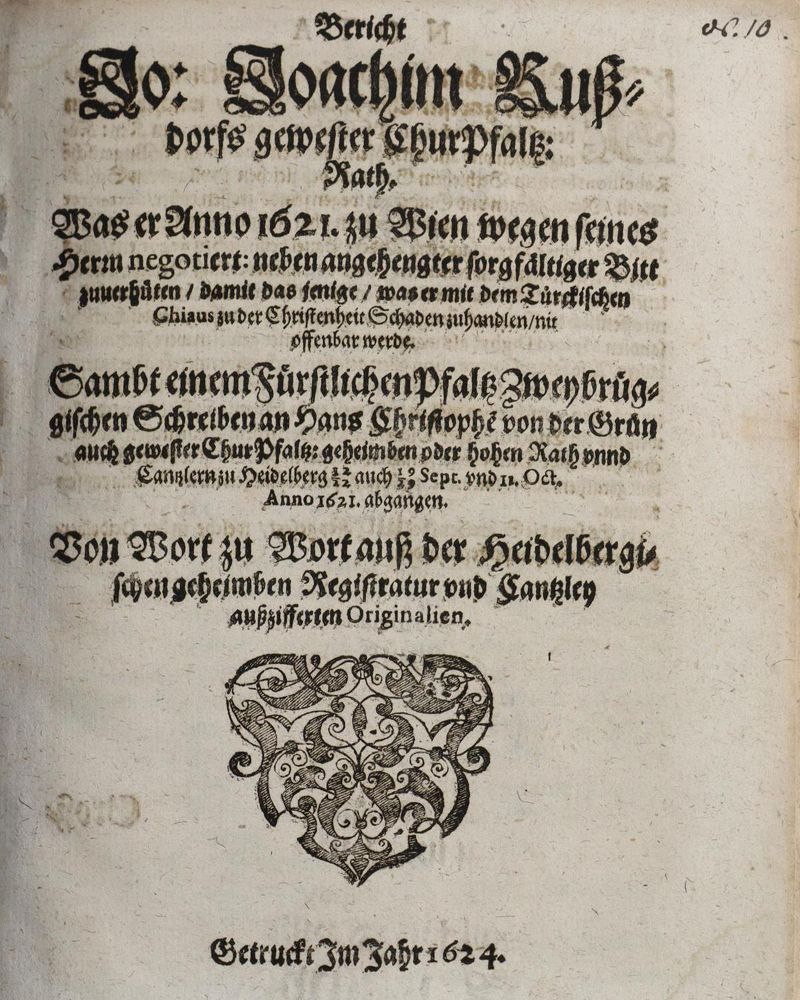 Bericht
Jo: Joachim Ruß-
dorfs gewester ChurPfaltz:
Rath.
Was er Anno 1621. zu Wien wegen seines
Herrn negotiert: neben angehengter sorgfältiger Bitt
zuuerhüten / damit das jenige / was er mit dem Türckischen
Chiaus zu der Christenheit Schaden zuhandlen / nit
offenbar werde.
Sambt einem Fürstlichen Pfaltz Zweybrüg-
gischen Schreiben an Hans Christophẽ von der Grün
auch gewester ChurPfaltz: geheimben oder hohen Rath vnnd
Cantzlern zu Heidelberg auch Sept. vnd 11. Oct.
Anno 1621. abgangen.
Von Wort zu Wort auß der Heidelbergi-
schen geheimben Registratur vnd Cantzley
außzifferten Originalien.
Getruckt Im Jahr 1624.